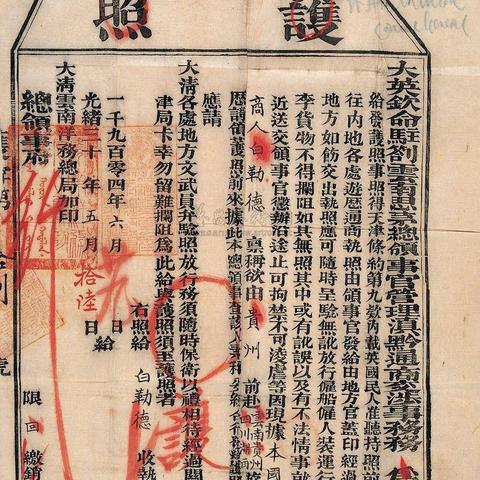 護照
大英欽命駐劄雲南思茅總領事官管理滇黔通商交涉事務
給發護照事照得天津條約第九款內載英國民人准聽持照前
往內地各處遊歷通商執照由領事官發給由地方官蓋印經過
地方如飭交出執照應可隨時呈驗無訛放行僱船僱人裝運行
李貨物不得攔阻如其無照其中或有訛誤以及有不法情事就
近送交領事官懲辦沿途止可拘禁不可凌虐等因現據本國
商人白勒德稟稱欲由貴州前赴雲南貴州
歷請領護照前來據此本總領事
應請
大清各處地方文武員弁驗照放行務須隨時保衛以禮相待經過關
津局卡幸勿留難攔阻為此給與護照須至護照者
右照給 白勒德 收執
一千九百零四年六月 日給
光緒三十年五月拾陸日給
大清雲南洋務總局加印
總領事府
限 回繳銷